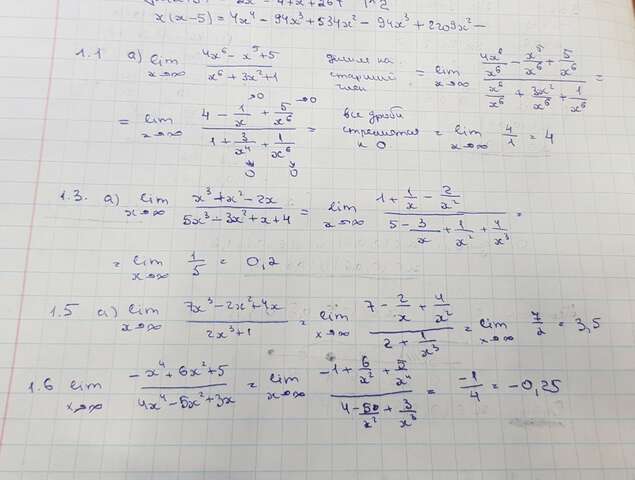 x(x-5) = 4x⁴ - 94x³ + 534x² - 94x³ + 2209x² -
1.1 а) lim x→∞ (4x⁶ - x⁵ + 5)/(x⁶ + 3x² + 1) делим на старший член = lim x→∞ (4x⁶/x⁶ - x⁵/x⁶ + 5/x⁶)/(x⁶/x⁶ + 3x²/x⁶ + 1/x⁶) =
= lim x→∞ (4 - 1/x →0 + 5/x⁶ →0)/(1 + 3/x⁴ →0 + 1/x⁶ →0) = все дроби стремятся к 0 = lim x→∞ 4/1 = 4
1.3. а) lim x→∞ (x³ + x² - 2x)/(5x³ - 3x² + x + 4) = lim x→∞ (1 + 1/x - 2/x²)/(5 - 3/x + 1/x² + 4/x³) =
= lim x→∞ 1/5 = 0,2
1.5 а) lim x→∞ (7x³ - 2x² + 4x)/(2x³ + 1) = lim x→∞ (7 - 2/x + 4/x²)/(2 + 1/x³) = lim x→∞ 7/2 = 3,5
1.6 lim x→∞ (-x⁴ + 6x² + 5)/(4x⁴ - 5x² + 3x) = lim x→∞ (-1 + 6/x² + 5/x⁴)/(4 - 5/x² + 3/x³) = -1/4 = -0,25